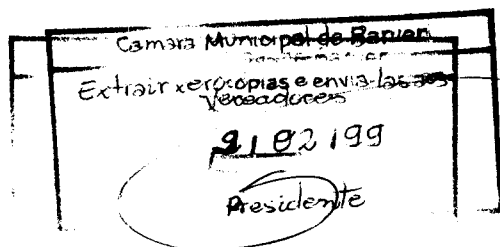 Camara Municipal de
Extrair xerocopias e envia-las aos
Vereadores
02 / 99
Presidente